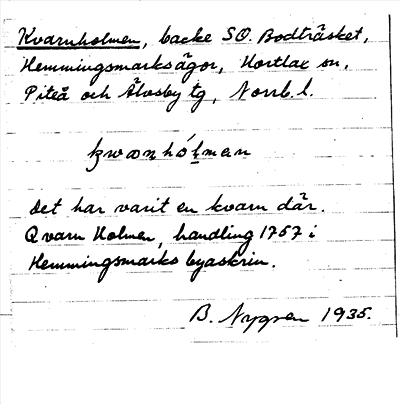 Kvarnholmen, backe SO. Bodträsket,
Hemmingsmarks ägor, Hortlax sn,
Piteå och Älvsby tg, Norrb. l.
kwαɳhólmen
Det har varit en kvarn där.
Qvarn Holmen, handling 1757 i
Hemmingsmarks byaskrin.
B. Nygren 1935.